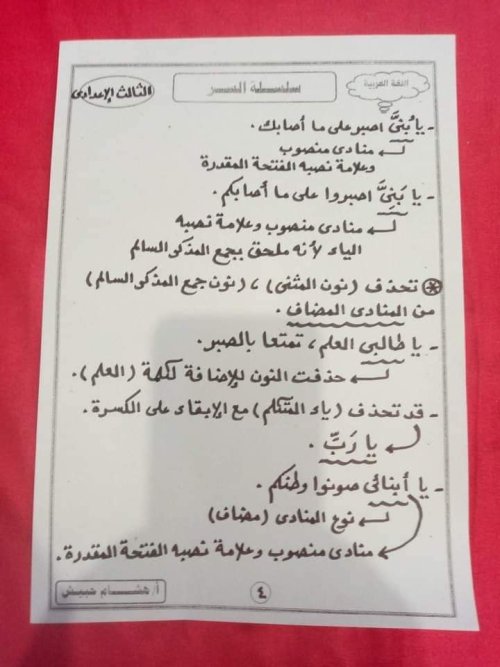 اللغة العربية
سلسلة السر
الثالث الإعدادى
- يا بُنىَّ اصبر على ما أصابك.
منادى منصوب
وعلامة نصبه الفتحة المقدرة
- يا بَنِىَّ اصبروا على ما أصابكم.
منادى منصوب وعلامة نصبه
الياء لأنه ملحق بجمع المذكر السالم
* تحذف (نون المثنى)، (نون جمع المذكر السالم)
من المنادى المضاف.
- يا طالبى العلم، تمتعا بالصبر.
حذفت النون للإضافة لكلمة (العلم).
- قد تحذف (ياء المتكلم) مع الإبقاء على الكسرة.
يا رَبِّ.
- يا أبنائى صونوا وطنكم.
نوع المنادى (مضاف)
منادى منصوب وعلامة نصبه الفتحة المقدرة.
٤
أ/ هشام